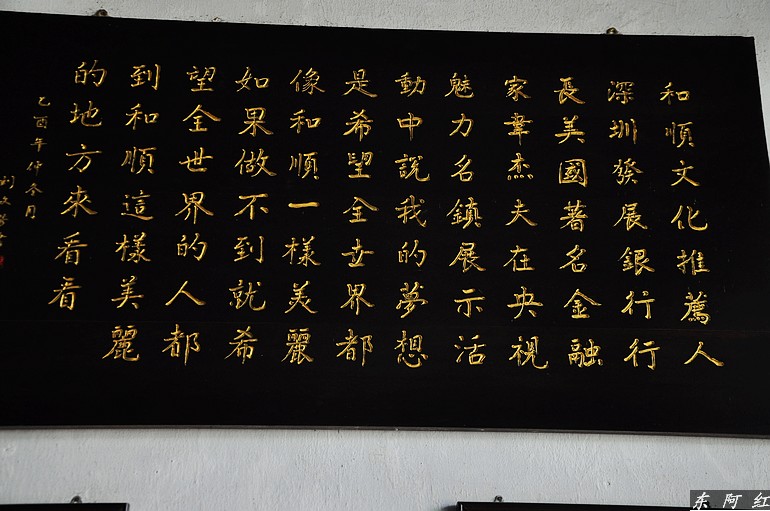 和順文化推薦人
深圳發展銀行行
長美國著名金融
家韋杰夫在央視
魅力名鎮展示活
動中說我的夢想
是希望全世界都
像和順一樣美麗
如果做不到就希
望全世界的人都
到和順這樣美麗
的地方來看看
乙酉年仲冬月
东阿红